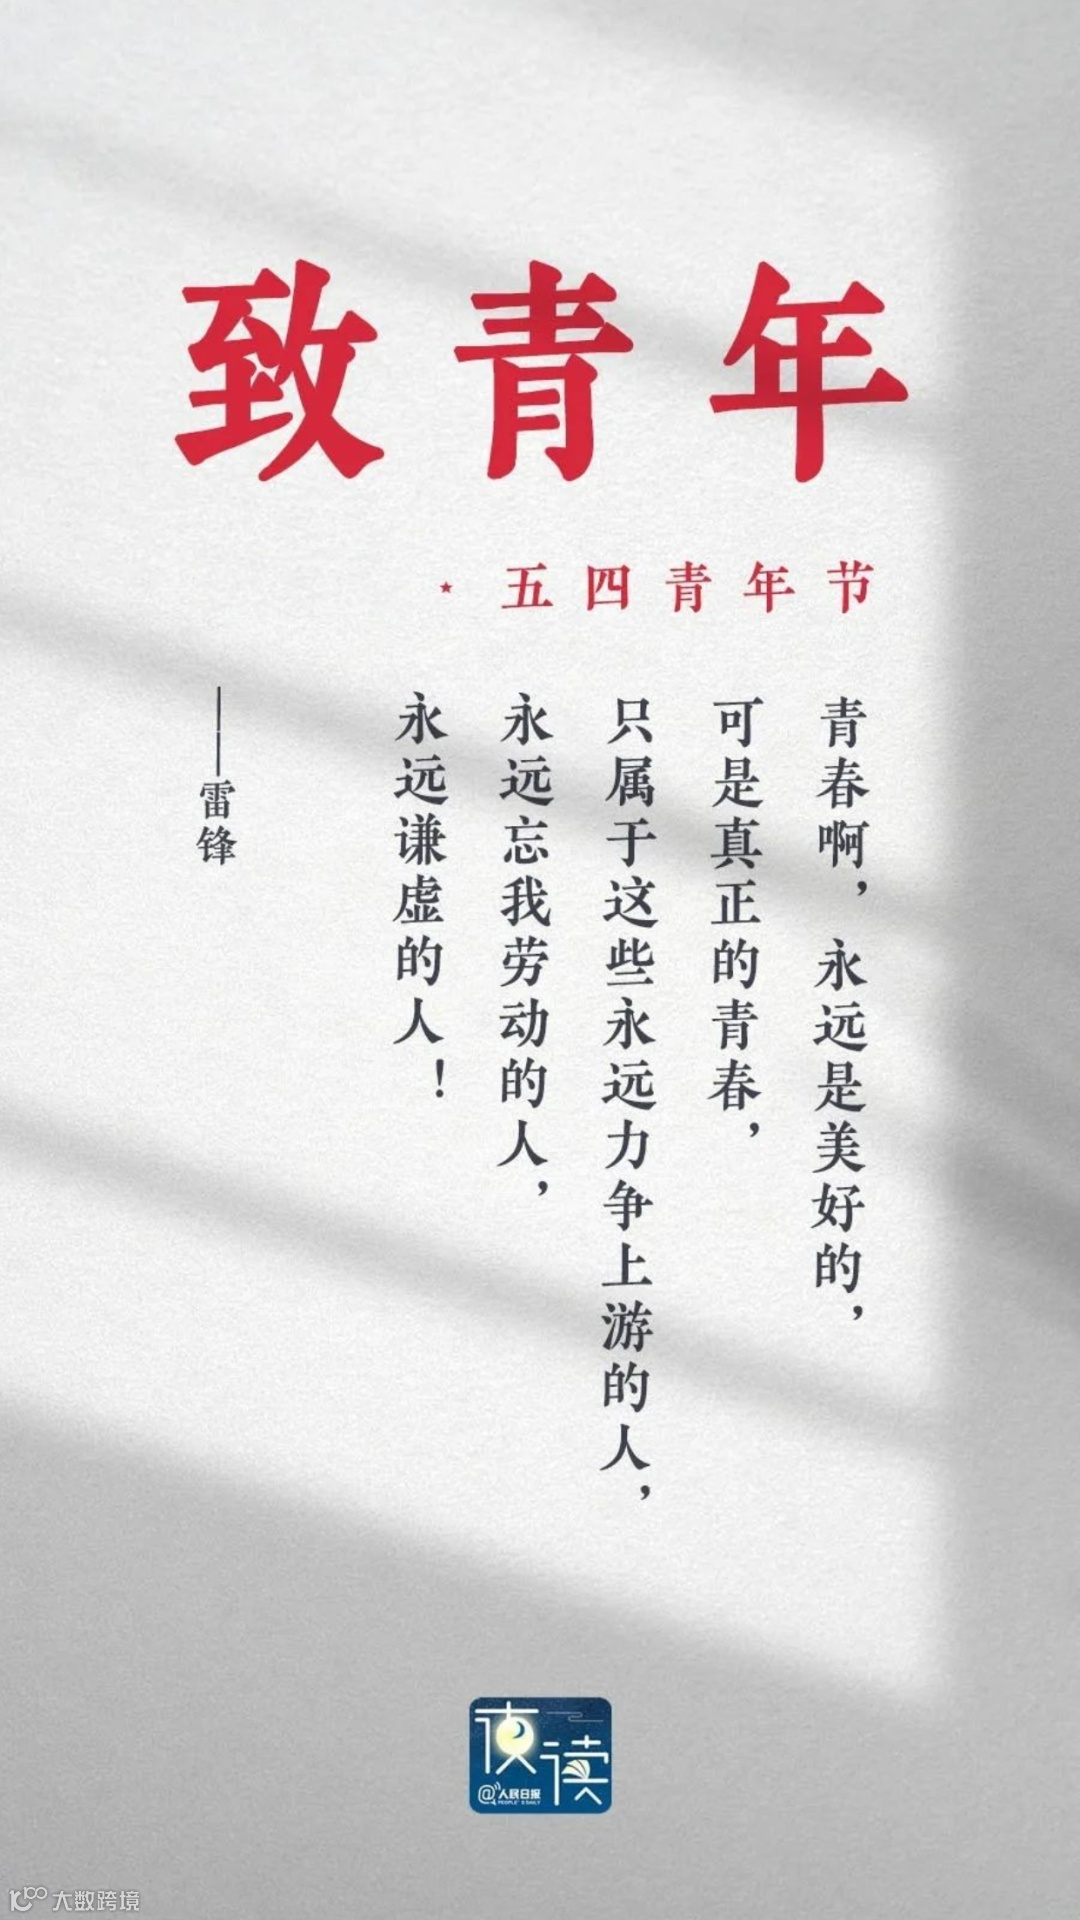 致青年
五四青年节
青春啊，永远是美好的，
可是真正的青春，
只属于这些永远力争上游的人，
永远忘我劳动的人，
永远谦虚的人！
——雷锋
夜读
@人民日报
PEOPLE'S DAILY
大数跨境